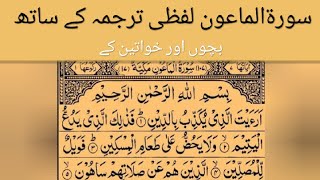 سورۃالماعون لفظی ترجمہ کے ساتھ
بچوں اور خواتین کے
سُوْرَةُ الْمَاعُوْنِ مَكِّيَّةٌ
بِسْمِ اللّٰهِ الرَّحْمٰنِ الرَّحِيْمِ
اَرَءَيْتَ الَّذِيْ يُكَذِّبُ بِالدِّيْنِ ۱ فَذٰلِكَ الَّذِيْ يَدُعُّ
الْيَتِيْمَ ۲ وَلَا يَحُضُّ عَلٰى طَعَامِ الْمِسْكِيْنِ ۳ فَوَيْلٌ
لِّلْمُصَلِّيْنَ ۴ الَّذِيْنَ هُمْ عَنْ صَلَاتِهِمْ سَاهُوْنَ ۵